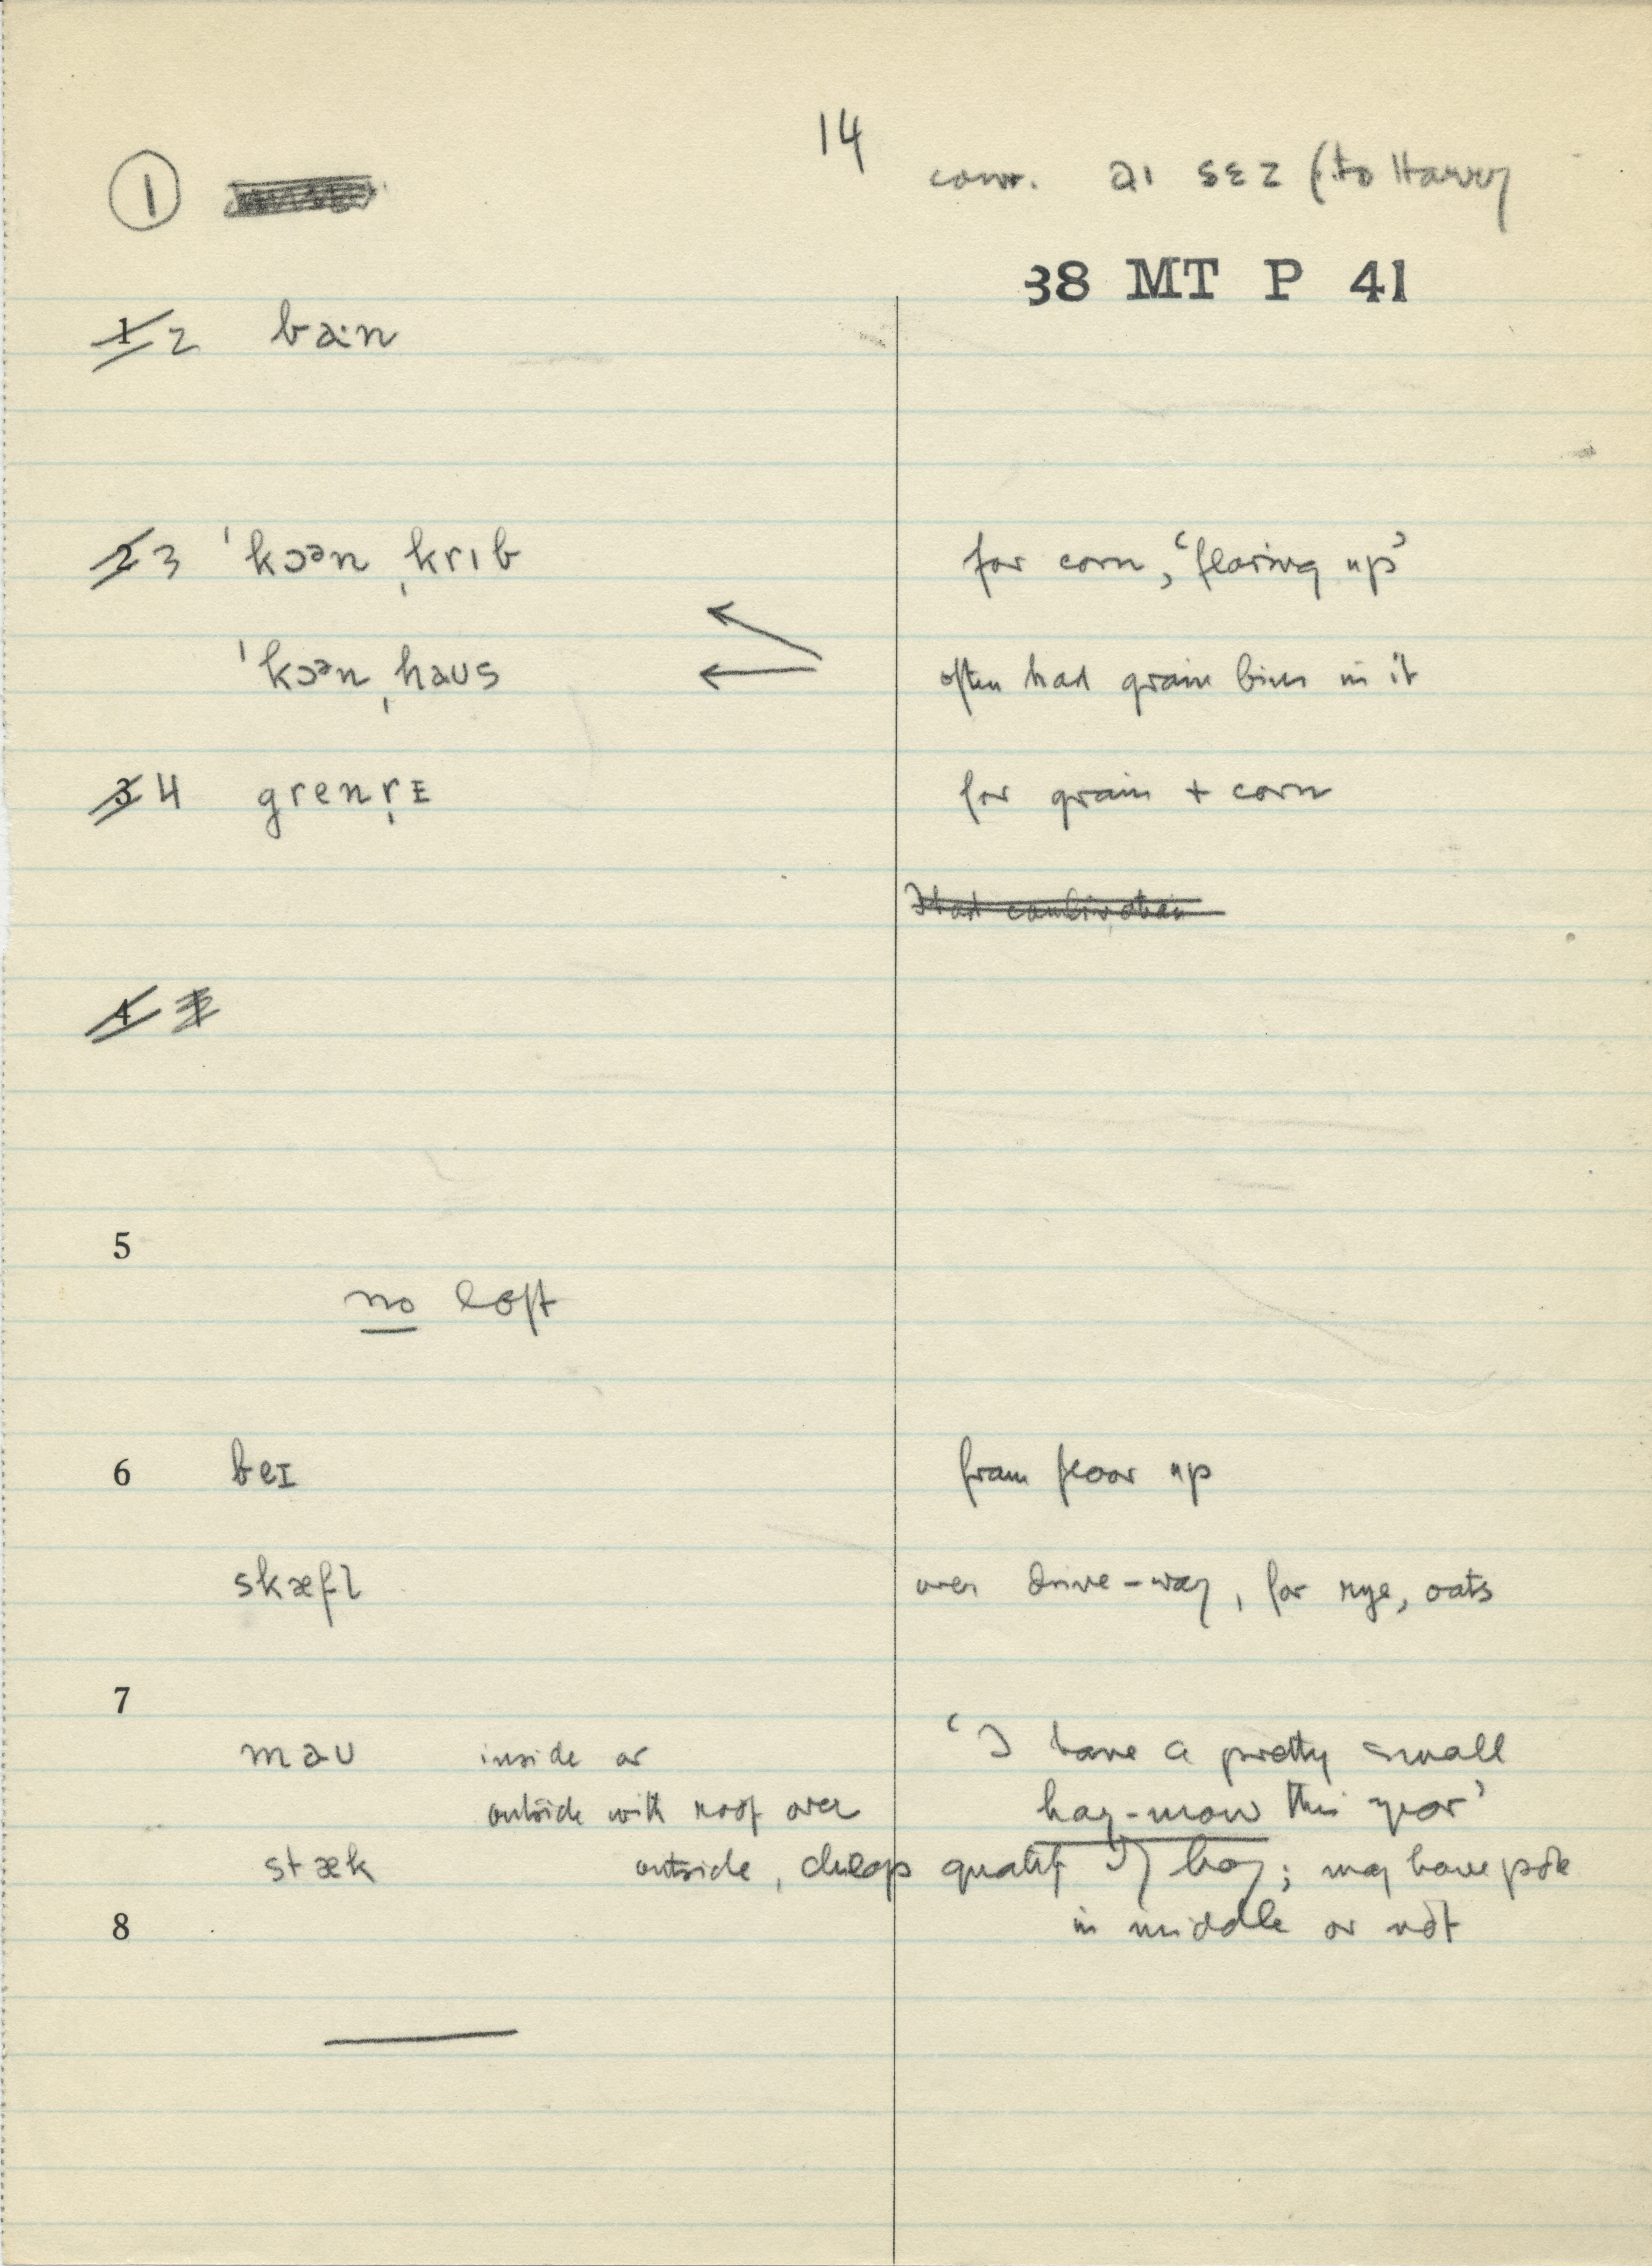 14
① conv. aɪ sɛz (to Harvey
38 MT P 41
1 2 baːn
2 3 ˈkɔᵊn ˌkrɪb for corn, ‘flaring up’
ˈkɔᵊn ˌhaus often had grain bins in it
3 4 grenr̩ɪ for grain + corn
4
5
no loft
6 beɪ from floor up
skæfl̩ over drive-way, for rye, oats
7
maʊ inside or ‘I have a pretty small
outside with roof over hay-mow this year’
stæk outside, cheap quality of hay; may have pole
8 in middle or not